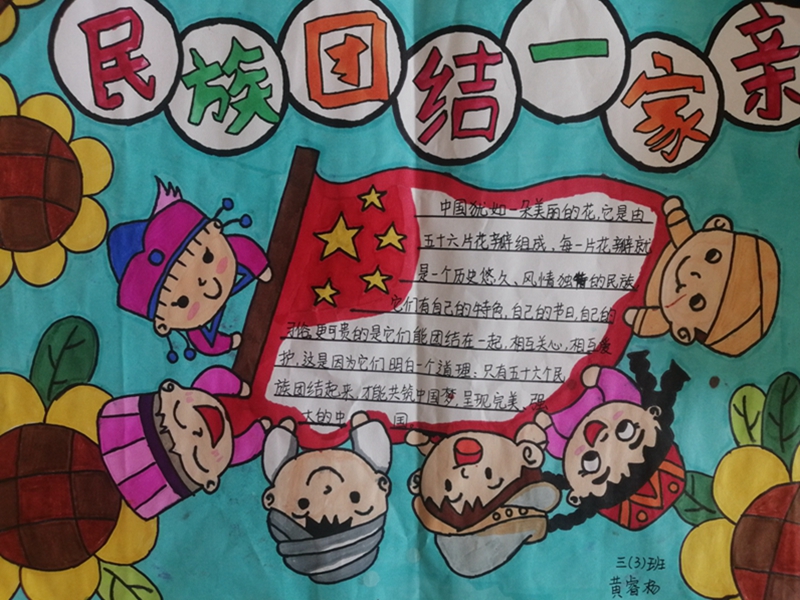 民族团结一家亲
中国犹如一朵美丽的花,它是由
五十六片花瓣组成,每一片花瓣就
是一个历史悠久、风情独特的民族
它们有自己的特色,自己的节日,自己的
习俗,更可贵的是它们能团结在一起,相互关心,相互爱
护,这是因为它们明白一个道理:只有五十六个民
族团结起来,才能共筑中国梦,呈现完美、强
大的中国
三(3)班
黄睿杨